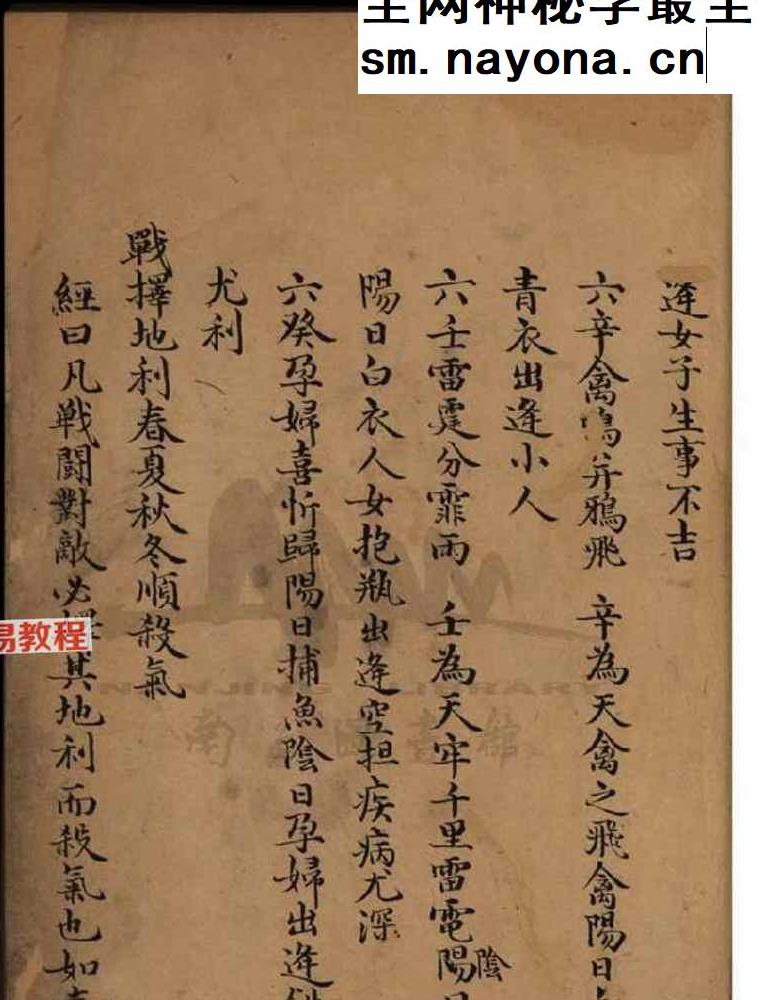 全网神秘学最全
sm.nayona.cn
逢女子生事不吉
六辛禽鳥并鴉飛 辛為天禽之飛禽陽日
青衣出逢小人
六壬雷霆分霏雨 壬為天牢千里雷電陽陰日
陽日白衣人女抱瓶出逢空担疾病尤深
六癸孕婦喜忻歸陽日捕魚陰日孕婦出逢
尤利
戰擇地利春夏秋冬順殺氣
經曰凡戰鬪對敵必擇其地利而殺氣也如
易教程
南京圖書館
NANJING LIBRARY